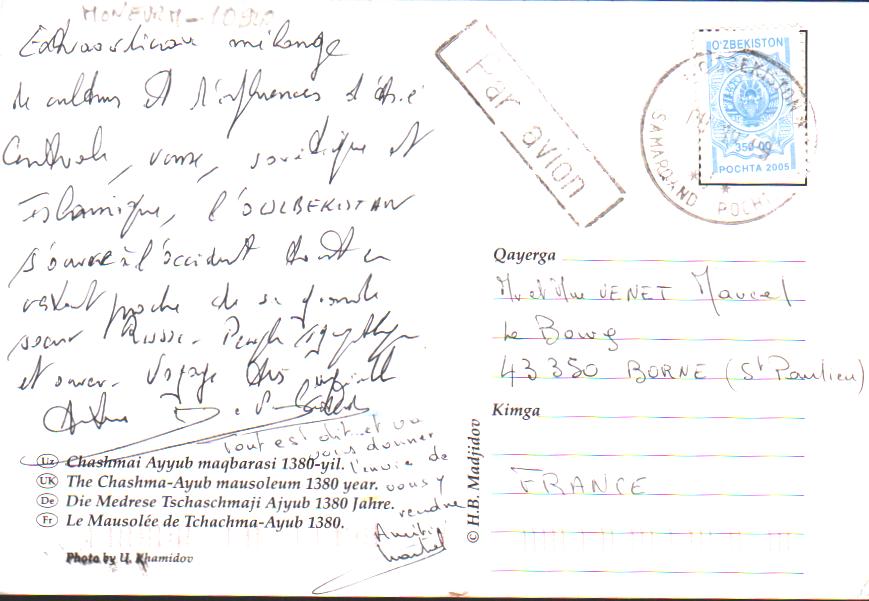 Extraordinaire mélange
de cultures et d'influences d'Asie
Centrale, russe, soviétique et
Islamique, l'OUZBEKISTAN
s'ouvre à l'occident tout en
restant proche de sa grande
soeur Russie. Peuple sympathique
et ouvert. Voyage très
Tout est dit et va
vous donner
l'envie de
vous y
rendre
Amitiés
Uz Chashmai Ayyub maqbarasi 1380-yil.
UK The Chashma-Ayub mausoleum 1380 year.
De Die Medrese Tschaschmaji Ajyub 1380 Jahre.
Fr Le Mausolée de Tchachma-Ayub 1380.
Photo by U. Khamidov
© H.B. Madjidov
Par avion
O'ZBEKISTON
350-00
POCHTA 2005
SAMARQAND POCHT
Qayerga
Mr et Mme VENET Marcel
Le Bourg
43 350 BORNE (St Paulien)
Kimga
FRANCE